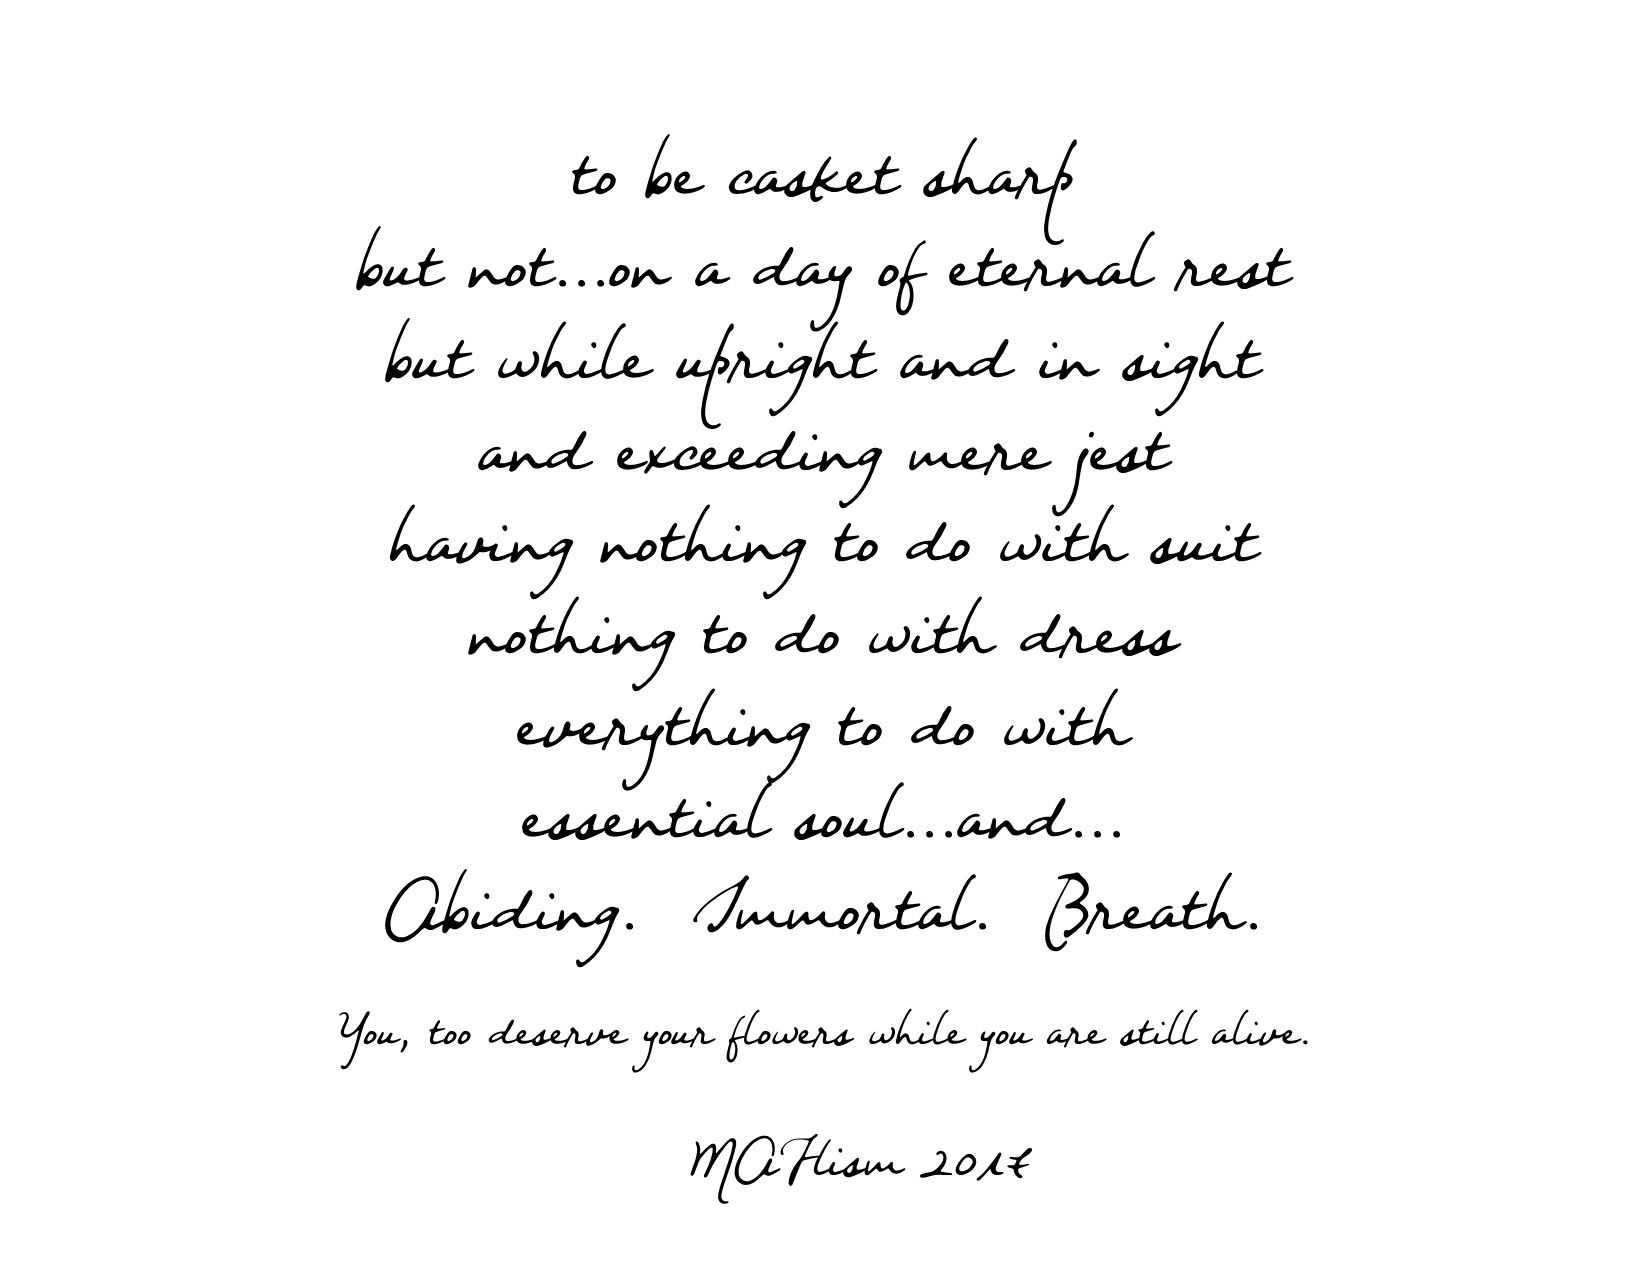 to be casket sharp
but not...on a day of eternal rest
but while upright and in sight
and exceeding mere jest
having nothing to do with suit
nothing to do with dress
everything to do with
essential soul...and...
Abiding. Immortal. Breath.
You, too deserve your flowers while you are still alive.
MAHism 2017